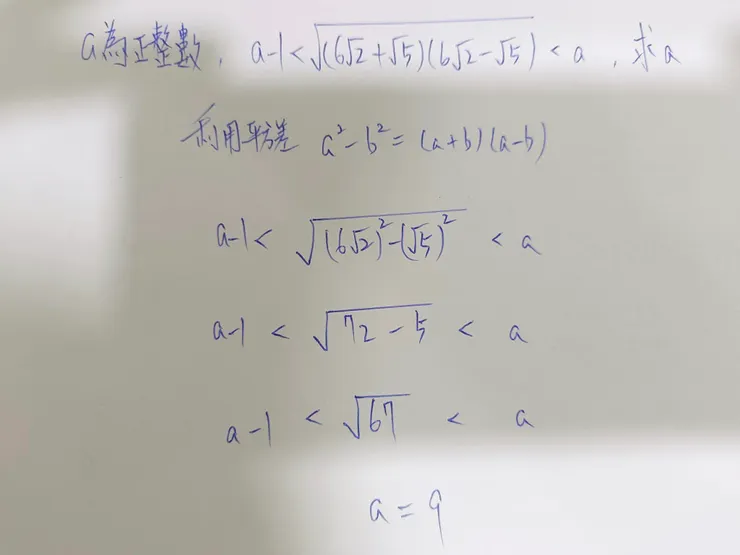 a為正整數, a-1<√((6√2+√5)(6√2-√5)) < a , 求a
利用平方差 a²-b²=(a+b)(a-b)
a-1 < √((6√2)²-(√5)²) < a
a-1 < √(72-5) < a
a-1 < √67 < a
a = 9